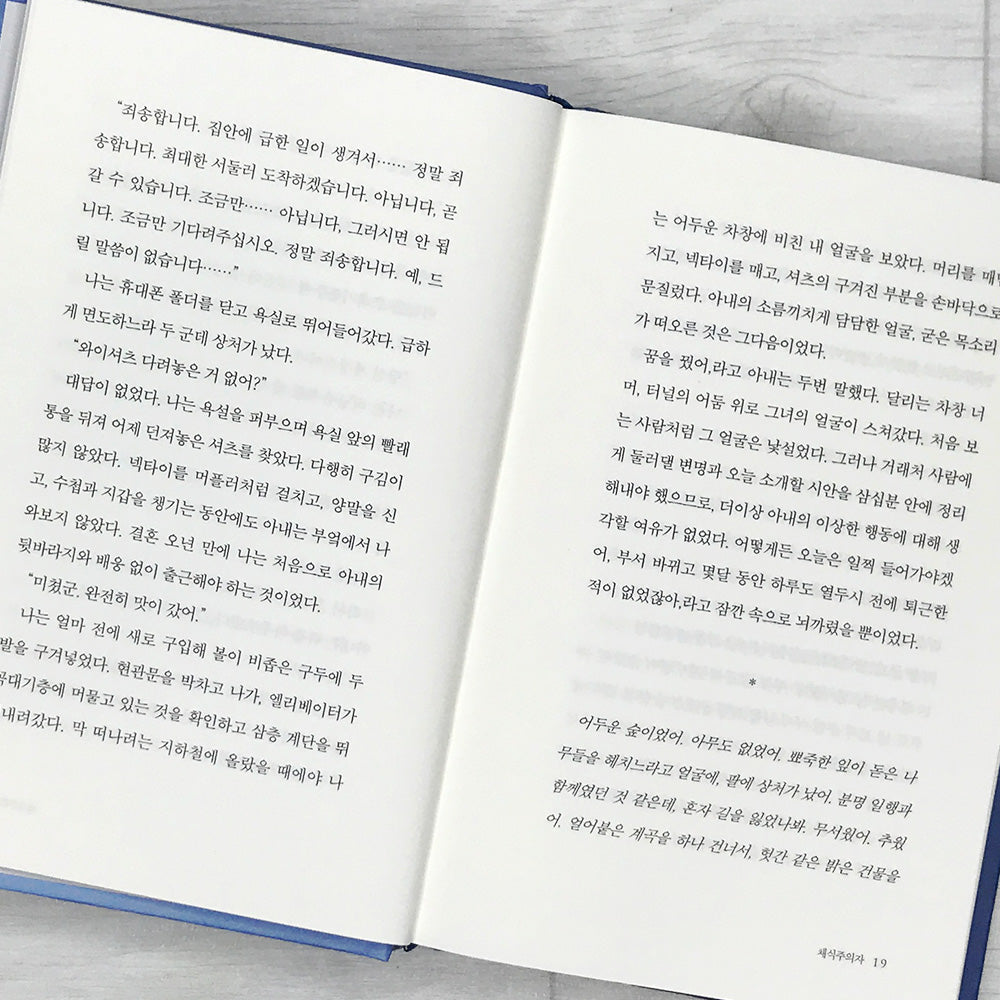 “죄송합니다. 집안에 급한 일이 생겨서…… 정말 죄
송합니다. 최대한 서둘러 도착하겠습니다. 아닙니다, 곧
갈 수 있습니다. 조금만…… 아닙니다, 그러시면 안 됩
니다. 조금만 기다려주십시오. 정말 죄송합니다. 예, 드
릴 말씀이 없습니다……”
나는 휴대폰 폴더를 닫고 욕실로 뛰어들어갔다. 급하
게 면도하느라 두 군데 상처가 났다.
“와이셔츠 다려놓은 거 없어?”
대답이 없었다. 나는 욕설을 퍼부으며 욕실 앞의 빨래
통을 뒤져 어제 던져놓은 셔츠를 찾았다. 다행히 구김이
많지 않았다. 넥타이를 머플러처럼 걸치고, 양말을 신
고, 수첩과 지갑을 챙기는 동안에도 아내는 부엌에서 나
와보지 않았다. 결혼 오년 만에 나는 처음으로 아내의
뒷바라지와 배웅 없이 출근해야 하는 것이었다.
“미쳤군. 완전히 맛이 갔어.”
나는 얼마 전에 새로 구입해 볼이 비좁은 구두에 두
발을 구겨넣었다. 현관문을 박차고 나가, 엘리베이터가
꼭대기층에 머물고 있는 것을 확인하고 삼층 계단을 뛰
내려갔다. 막 떠나려는 지하철에 올랐을 때에야 나
는 어두운 차창에 비친 내 얼굴을 보았다. 머리를 매만
지고, 넥타이를 매고, 셔츠의 구겨진 부분을 손바닥으로
문질렀다. 아내의 소름끼치게 담담한 얼굴, 굳은 목소리
가 떠오른 것은 그다음이었다.
꿈을 꿨어,라고 아내는 두번 말했다. 달리는 차창 너
머, 터널의 어둠 위로 그녀의 얼굴이 스쳐갔다. 처음 보
는 사람처럼 그 얼굴은 낯설었다. 그러나 거래처 사람에
게 둘러댈 변명과 오늘 소개할 시안을 삼십분 안에 정리
해내야 했으므로, 더이상 아내의 이상한 행동에 대해 생
각할 여유가 없었다. 어떻게든 오늘은 일찍 들어가야겠
어, 부서 바뀌고 몇달 동안 하루도 열두시 전에 퇴근한
적이 없었잖아,라고 잠깐 속으로 뇌까렸을 뿐이었다.
*
어두운 숲이었어. 아무도 없었어. 뾰죽한 잎이 돋은 나
무들을 헤치느라고 얼굴에, 팔에 상처가 났어. 분명 일행과
함께였던 것 같은데, 혼자 길을 잃었나봐. 무서웠어. 추웠
어. 얼어붙은 계곡을 하나 건너서, 헛간 같은 밝은 건물을
채식주의자 19